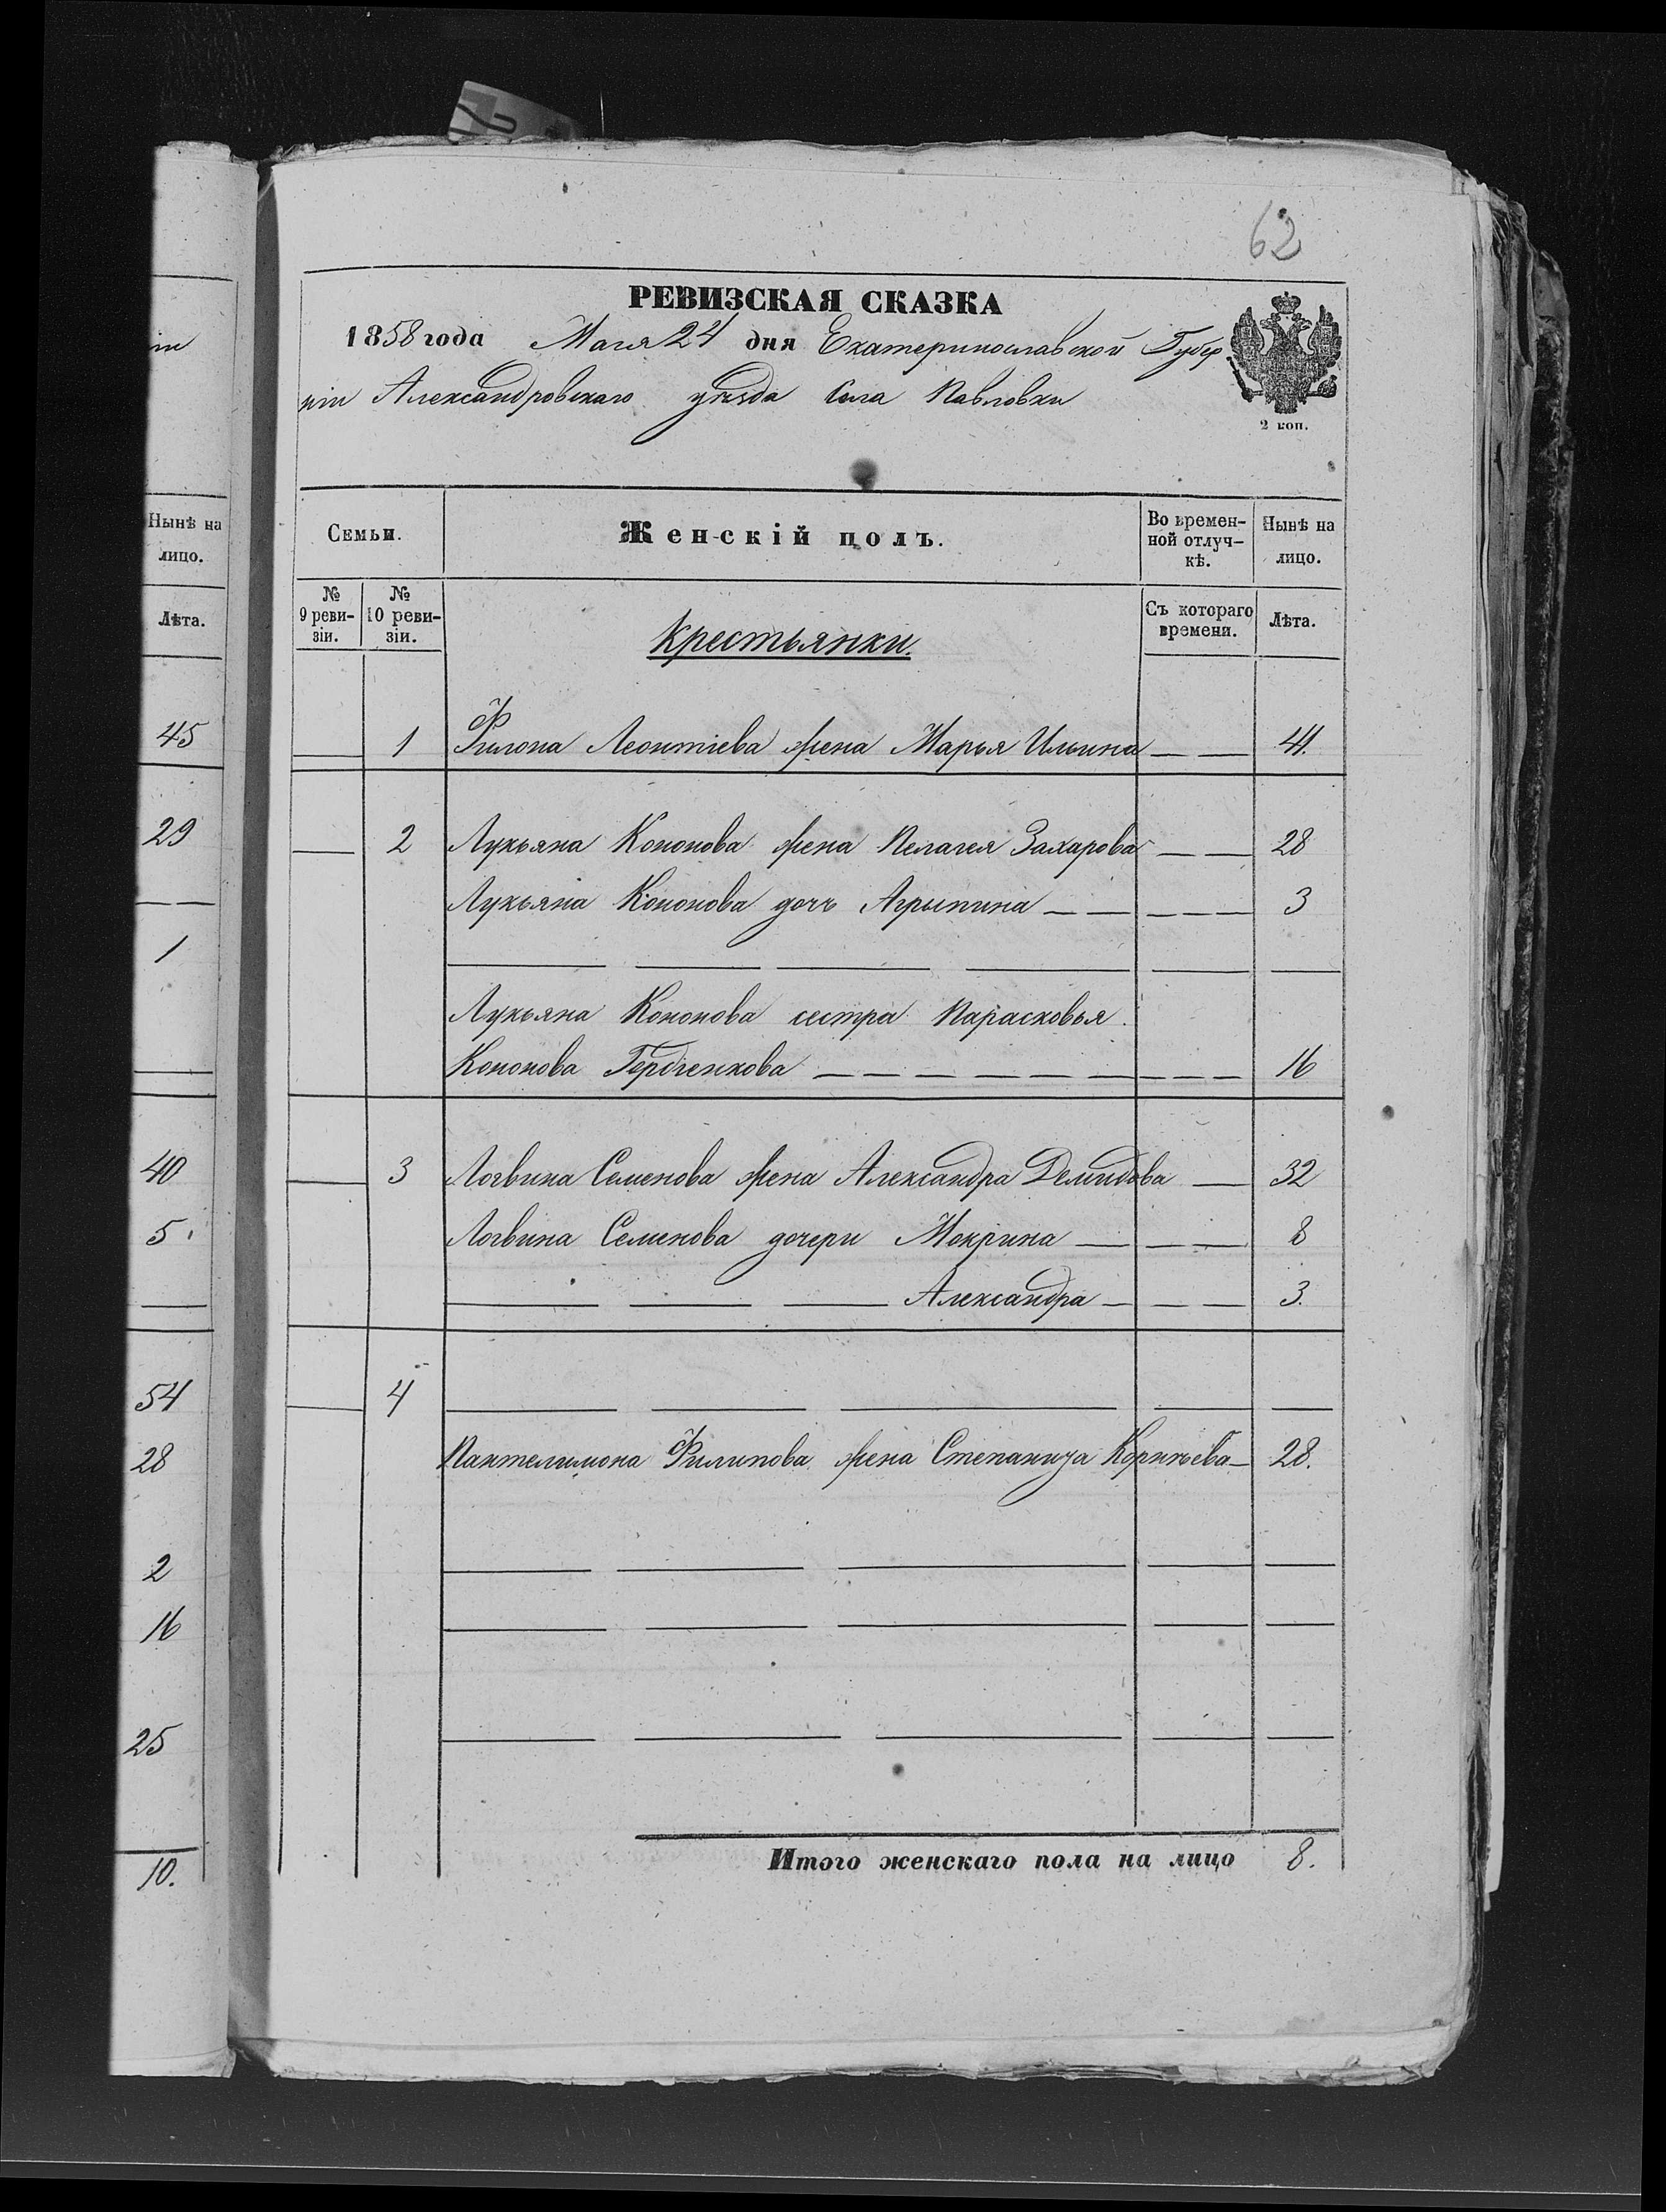 62
РЕВИЗСКАЯ СКАЗКА
1858 года Мая 24 дня Екатеринославской Губер
ніи Александровскаго уѣзда Села Павловки
2 коп.
ніи
Нынѣ на
лицо.
Лѣта.
45
29
1
40
5
54
28
2
16
25
10.
Семьи.
Женскій полъ.
Во времен-
ной отлуч-
кѣ.
Нынѣ на
лицо.
№
9 реви-
зіи.
№
10 реви-
зіи.
Крестьянки.
Съ котораго
времени.
Лѣта.
1 Филона Леонтіева жена Марья Ильина — — 41.
2 Лукьяна Кононова жена Пелагея Захарова — — 28
Лукьяна Кононова дочь Агрыпина — — — — — 3
Лукьяна Кононова сестра Парасковья
Кононова — — — — — — — — — 16
3 Логвина Семенова жена Александра Демидова — 32
Логвина Семенова дочери Мокрина — — — 8
— — — Александра — — — 3.
4 — — — — —
Пантелимона Филипова жена Степанида Корнѣева — 28.
Итого женскаго пола на лицо 8.